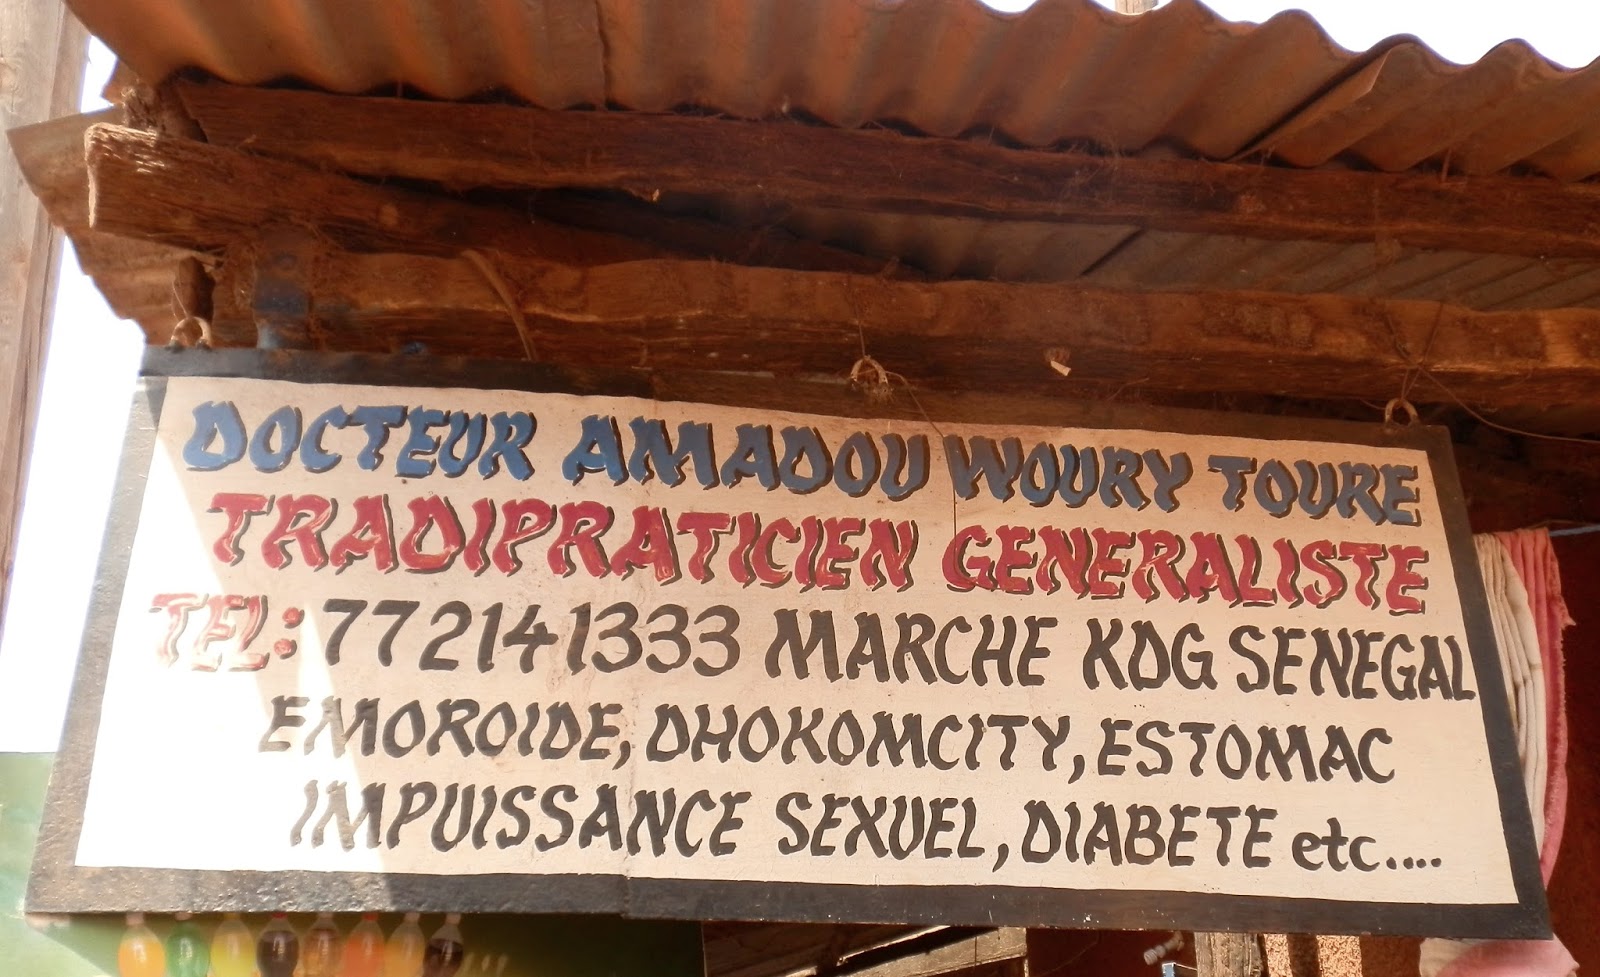 DOCTEUR AMADOU WOURY TOURE
TRADIPRATICIEN GENERALISTE
TEL: 77 214 1333 MARCHE KDG SENEGAL
EMOROIDE, DHOKOMCITY, ESTOMAC
IMPUISSANCE SEXUEL, DIABETE etc....